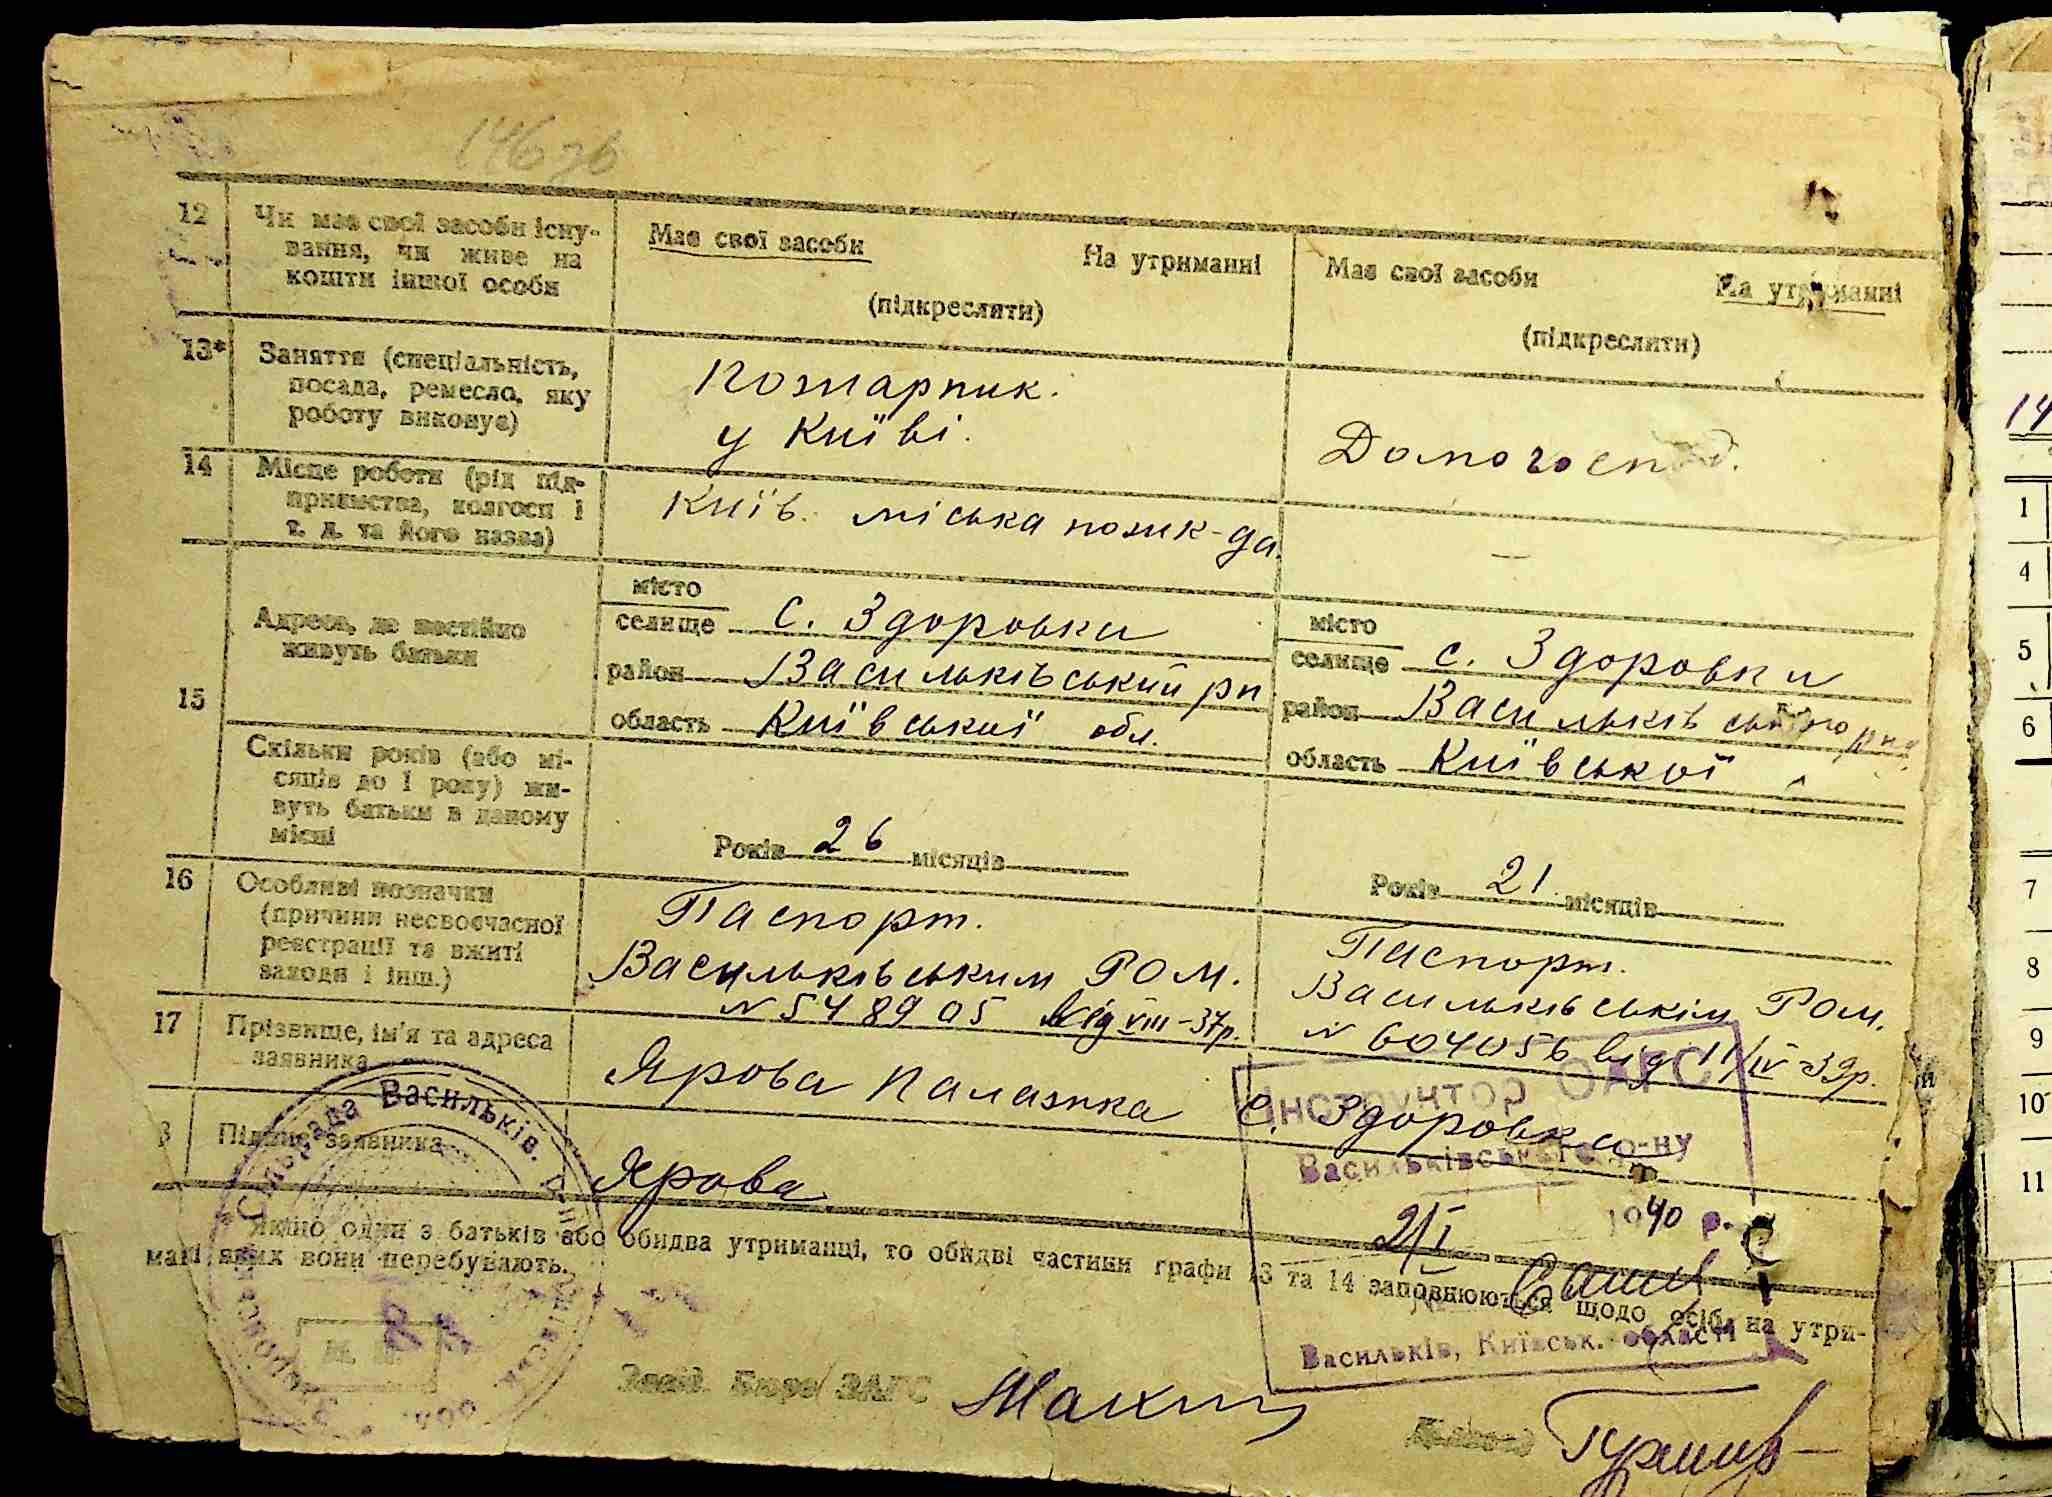 146 зв
12 Чи має свої засоби існу-
вання, чи живе на
кошти іншої особи
Має свої засоби На утриманні
(підкреслити)
Має свої засоби На утриманні
(підкреслити)
13* Заняття (спеціальність,
посада, ремесло, яку
роботу виконує)
Пожарник.
у Київі.
Домогосп
14 Місце роботи (рід під-
приємства, колгосп і
т. д. та його назва)
Київ. міська пожик-да.
–
15 Адреса, де постійно
живуть батьки
місто
селище с. Здоровки
район Васильківський рн
область Київської обл.
місто
селище с. Здоровки
район Васильківського рну
область Київської
Скільки років (або мі-
сяців до 1 року) жи-
вуть батьки в даному
місці
Років 26 місяців
Років 21 місяців
16 Особливі позначки
(причини несвоєчасної
реєстрації та вжиті
заходи і інш.)
Паспорт.
Васильківським РОМ.
№ 548905 від VIII-37р.
Паспорт.
Васильківськім РОМ.
№ 604056 від 11/IV-39р.
17 Прізвище, ім'я та адреса
заявника
Ярова Палажка с. Здоровка
Підпис заявника
Ярова
Якщо один з батьків або обидва утриманці, то обидві частини графи 13 та 14 заповнюються щодо осіб, на утри-
манні яких вони перебувають.
Інструктор ОАГС
Васильківського р-ну
2/I 1940 р.
Васильків, Київськ. області
Сільрада Васильків.
обл.
М. П.
Завід. Бюро ЗАГС
14
1
4
5
6
7
8
9
10
11